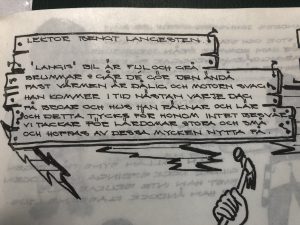 LEKTOR BENGT LANGESTEN
"LANGIS" BIL ÄR FUL OCH GRÅ
BRUMMAR & GÅR DE GÖR DEN ÄNDÅ
FAST VARMEN ÄR DÅLIG OCH MOTORN SVAG
HAN KOMMER I TID NÄSTAN VARJE DAG
PÅ BROAR OCH HUS HAN RÄKNAR OCH LÄR
OCH DETTA TYCKS FÖR HONOM INTET BESVÄR
VI TACKAR FÖR LÄRDOMAR STORA OCH SMÅ
OCH HOPPAS AV DESSA MYCKEN NYTTA FÅ